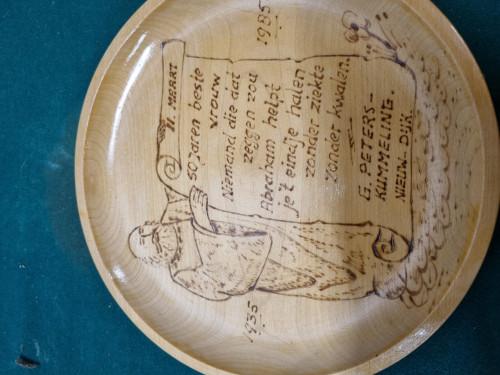 1935
1985
11 MAART
50 jaren beste
vrouw
Niemand die dat
zeggen zou
Abraham helpt
je 't eindje halen
zonder ziekte
zonder kwalen.
G. PETERS-
KUMMELING.
NIEUW-DIJK.